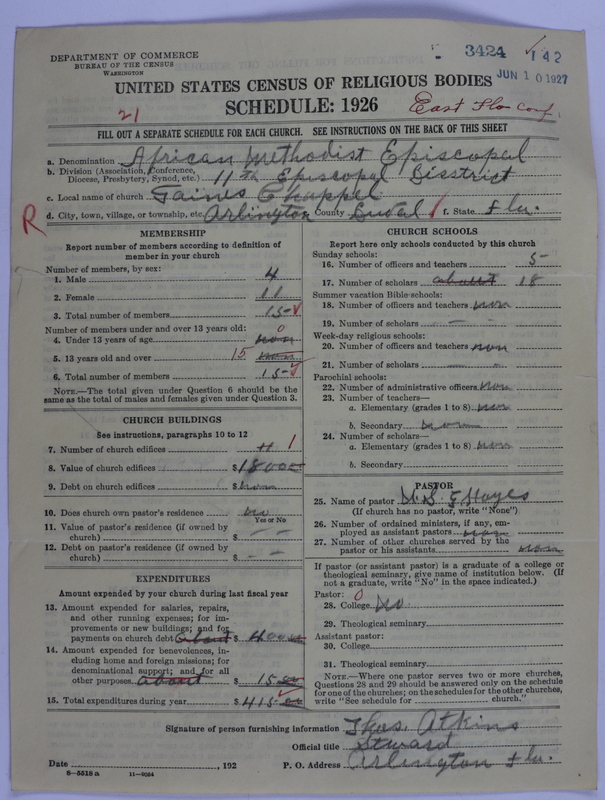 3424 142
DEPARTMENT OF COMMERCE
BUREAU OF THE CENSUS
WASHINGTON
JUN 10 1927
UNITED STATES CENSUS OF RELIGIOUS BODIES
SCHEDULE: 1926
21 East Fla Conf.
FILL OUT A SEPARATE SCHEDULE FOR EACH CHURCH. SEE INSTRUCTIONS ON THE BACK OF THIS SHEET
a. Denomination African Methodist Episcopal
b. Division (Association, Conference,
Diocese, Presbytery, Synod, etc.) 11th Episcopal Disstrict
c. Local name of church Gaines Chappel
R d. City, town, village, or township, etc. Arlington County Duval f. State Fla.
MEMBERSHIP
Report number of members according to definition of
member in your church
Number of members, by sex:
1. Male 4
2. Female 11
3. Total number of members 15
Number of members under and over 13 years old:
4. Under 13 years of age non 0
5. 13 years old and over 15 non
6. Total number of members 15
NOTE.—The total given under Question 6 should be the
same as the total of males and females given under Question 3.
CHURCH BUILDINGS
See instructions, paragraphs 10 to 12
7. Number of church edifices 1
8. Value of church edifices $1800
9. Debt on church edifices $non
10. Does church own pastor's residence no
Yes or No
11. Value of pastor's residence (if owned by
church) $ - -
12. Debt on pastor's residence (if owned by
church) $ - -
EXPENDITURES
Amount expended by your church during last fiscal year
13. Amount expended for salaries, repairs,
and other running expenses; for im-
provements or new buildings; and for
payments on church debt about $ 400
14. Amount expended for benevolences, in-
cluding home and foreign missions; for
denominational support; and for all
other purposes about $ 15
15. Total expenditures during year $415
CHURCH SCHOOLS
Report here only schools conducted by this church
Sunday schools:
16. Number of officers and teachers 5
17. Number of scholars about 18
Summer vacation Bible schools:
18. Number of officers and teachers non
19. Number of scholars - -
Week-day religious schools:
20. Number of officers and teachers non
21. Number of scholars - -
Parochial schools:
22. Number of administrative officers non
23. Number of teachers—
a. Elementary (grades 1 to 8) non
b. Secondary non
24. Number of scholars—
a. Elementary (grades 1 to 8) non
b. Secondary
PASTOR
25. Name of pastor Hayes
(If church has no pastor, write "None")
26. Number of ordained ministers, if any, em-
ployed as assistant pastors non
27. Number of other churches served by the
pastor or his assistants non
If pastor (or assistant pastor) is a graduate of a college or
theological seminary, give name of institution below. (If
not a graduate, write "No" in the space indicated.)
Pastor: 0
28. College No
29. Theological seminary
Assistant pastor:
30. College
31. Theological seminary
NOTE.—Where one pastor serves two or more churches,
Questions 28 and 29 should be answered only on the schedule
for one of the churches; on the schedules for the other churches,
write "See schedule for church."
Signature of person furnishing information Thos. Atkins
Official title Steward
Date , 192 P. O. Address Arlington Fla.
8—5516 a 11—9064